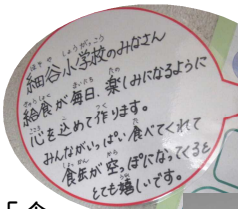 細谷小学校のみなさん
給食が毎日、楽しみになるように
心を込めて作ります。
みんながいっぱい食べてくれて
食缶が空っぽになってくると
とても嬉しいです。